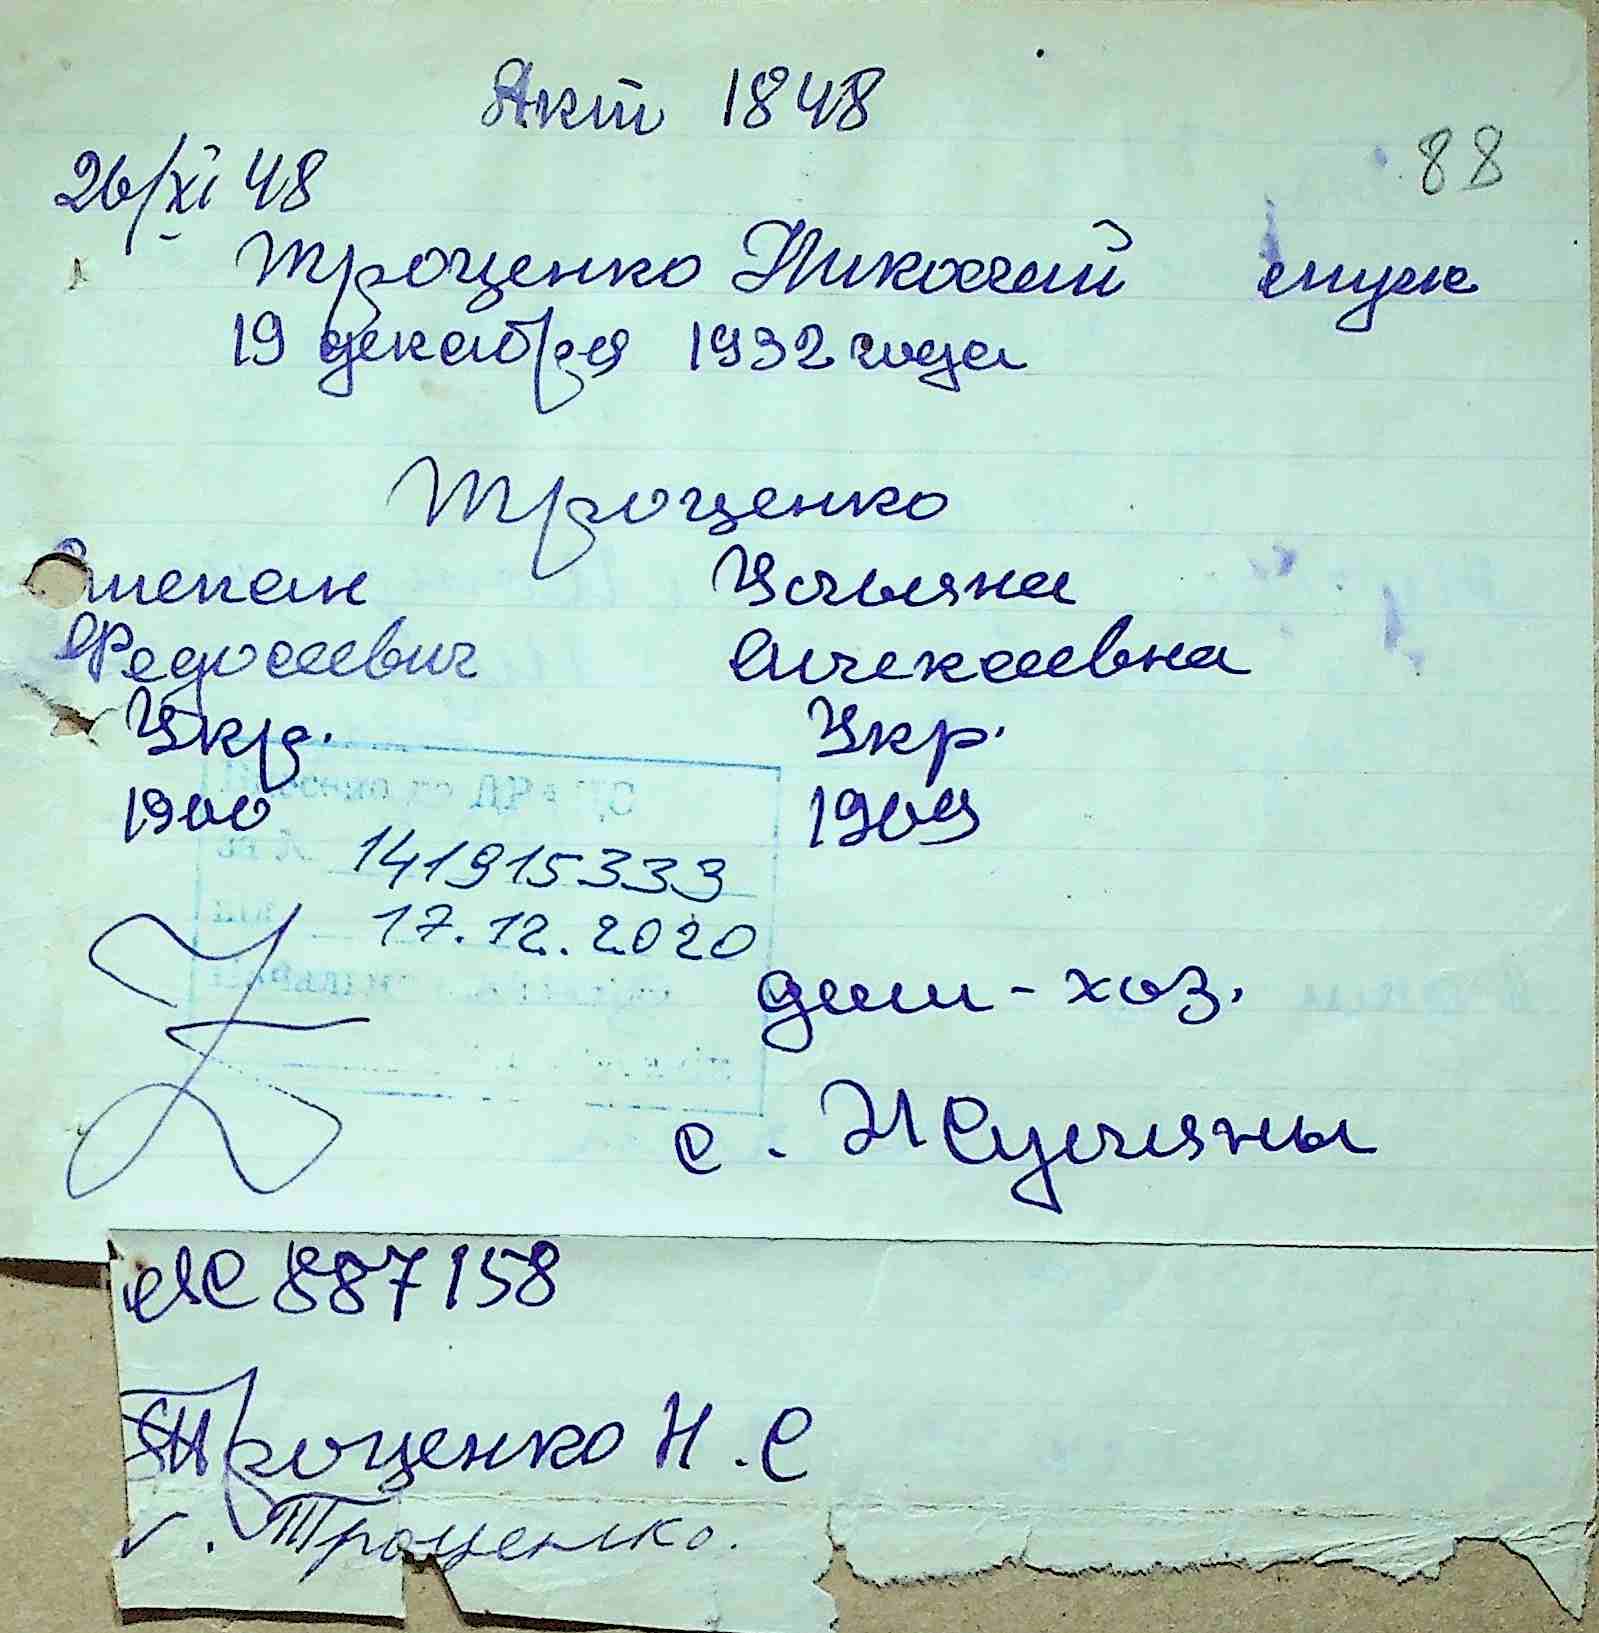 Акт 1848
88
26/XI 48
Троценко Николай муж
19 декабря 1932 года
Троценко
Степан Ульяна
Федосеевич Алексеевна
Укр. Укр.
1900 1909
141915333
17.12.2020
дом-хоз.
с. Жуляны
ЯС 887158
Троценко Н.С
Троценко.